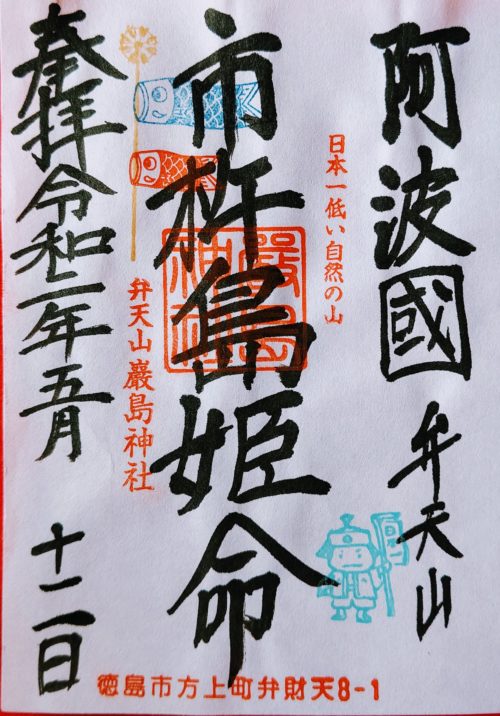 阿波國 弁天山
日本一低い自然の山
市杵島姫命
嚴島
神社
弁天山巖島神社
奉拝 令和二年五月 十二日
徳島市方上町弁財天8-1